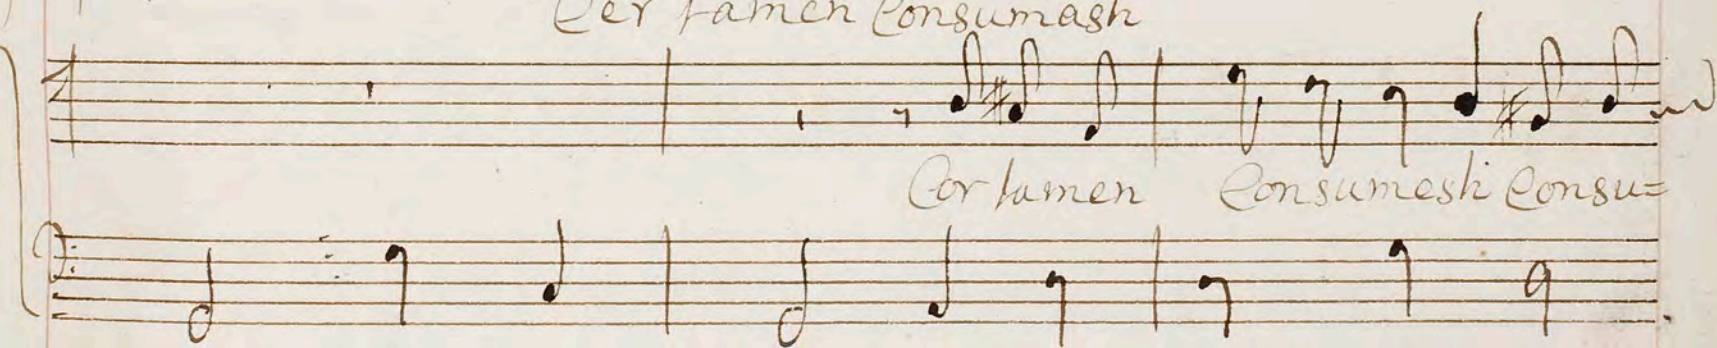 Cer tamen Consumasti
Cor tamen Consumesti Consu=